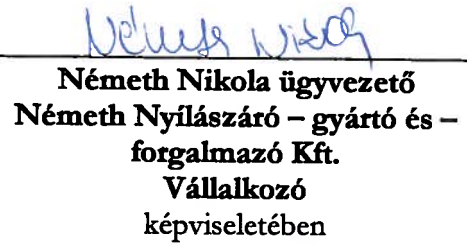 Németh Nikola
Németh Nikola ügyvezető
Németh Nyílászáró – gyártó és –
forgalmazó Kft.
Vállalkozó
képviseletében